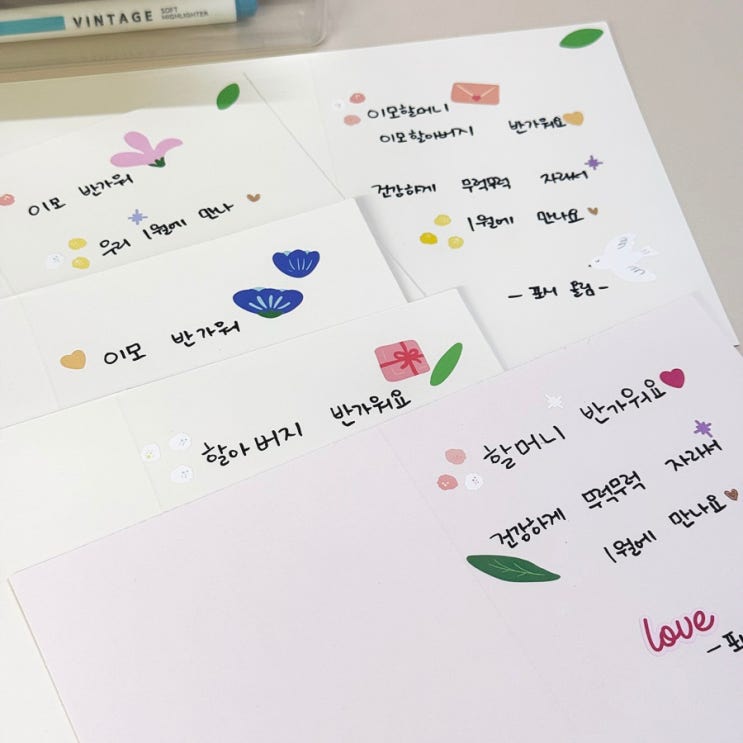 VINTAGE SOFT HIGHLIGHTER
이모할머니
이모할아버지 반가워요
건강하게 무럭무럭 자라서
1월에 만나요
- 포시 올림 -
이모 반가워
우리 1월에 만나
이모 반가워
할아버지 반가워요
할머니 반가워요
건강하게 무럭무럭 자라서
1월에 만나요
love
- 포시